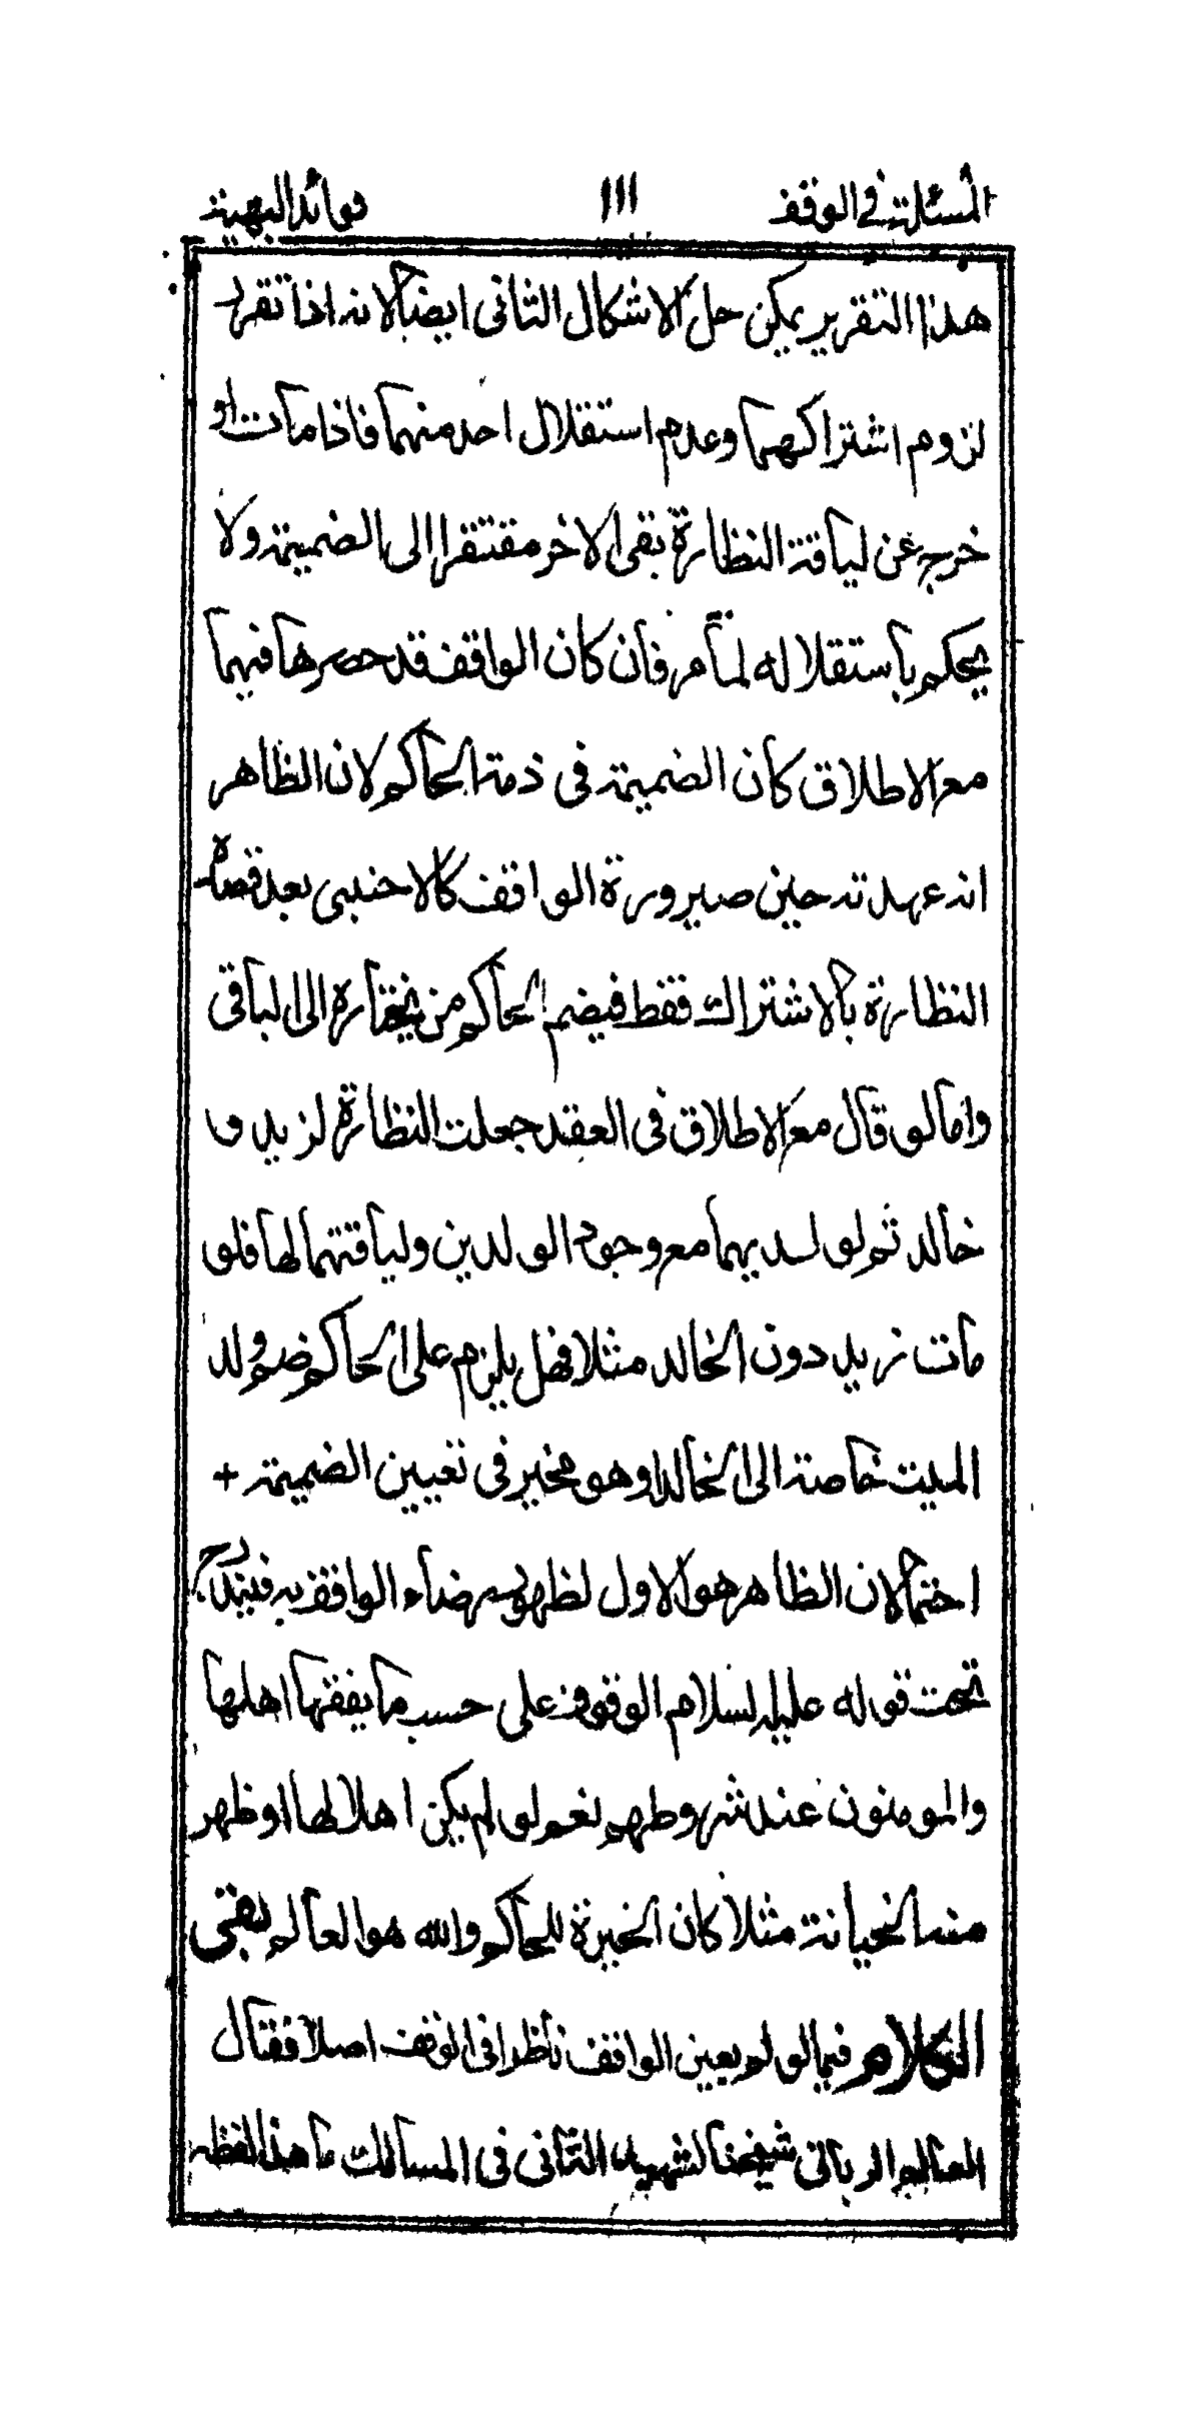 المسئلة في الوقف ١١١ فوائد البهية
هذا التقرير يمكن حل الاشكال الثاني ايضا لانه اذا تقرر
لزوم اشتراكهما وعدم استقلال احد منهما فاذا مات او
خرج عن لياقة النظارة بقي الاخر مفتقرا الى الضميمة ولا
يحكم باستقلاله لما مر فان كان الواقف قد حصرها فيهما
مع الاطلاق كان الضميمة في ذمة الحاكم لان الظاهر
انه عهدته حين صيرورة الواقف كالاجنبي بعد قصاه
النظارة بالاشتراك فقط فيضم الحاكم من يختاره الى الباقي
واما لو قال مع الاطلاق في العقد جعلت النظارة لزيد و
خالد ثم لولديهما مع وجود الولدين ولياقتهما لها فلو
مات زيد دون الخالد مثلا فهل يلزم على الحاكم ضم ولد
الميت خاصة الى الخالد او هو مخير في تعيين الضميمة +
احتمالان الظاهر هو الاول لظهور رضاء الواقف به فيندرج
تحت قوله عليه السلام الوقوف على حسب ما يقفها اهلها
والمومنون عند شروطهم نعم لو لم يكن اهلا لها او ظهر
منه الخيانة مثلا كان الخيرة للحاكم والله هو العالم بقى
الكلام فيما لو لم يعين الواقف ناظرا في الوقف اصلا فقال
العالم الربانى شيخنا الشهيد الثاني في المسالك ما هذا لفظه